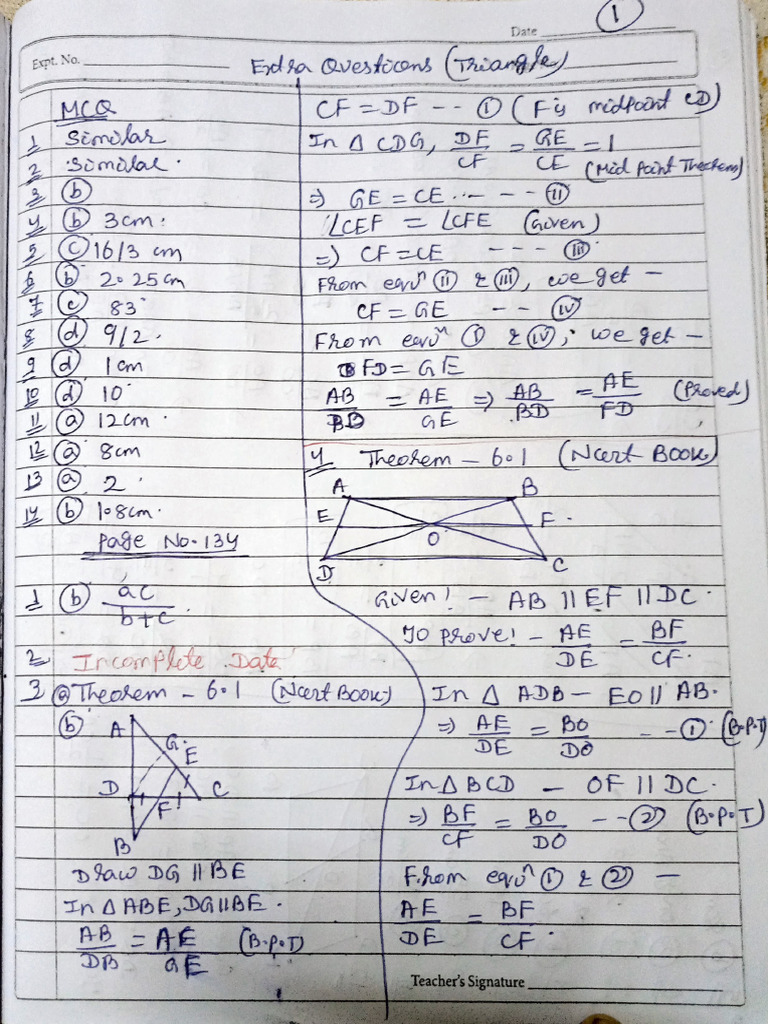 1
Date
Expt. No.
Extra Questions (Triangle)
MCQ
1 Similar
2 Similar.
3 (b)
4 (b) 3cm.
5 (c) 16/3 cm
6 (b) 2.25cm
7 (c) 83°
8 (d) 9/2.
9 (d) 1cm
10 (d) 10
11 (a) 12cm.
12 (a) 8cm
13 (a) 2
14 (b) 1.8cm.
Page No. 134
1 (b) ac/b+c.
2 Incomplete Data
3 (a) Theorem - 6.1 (Ncert Book)
(b)
A
G
E
D
F
C
B
Draw DG || BE
In △ ABE, DG || BE.
AB/DB = AE/GE (B.P.T)
CF = DF -- (I) (F is midpoint CD)
In △ CDG, DF/CF = GE/CE = 1
(Mid Point Theorem)
=> GE = CE ----- (II)
∠CEF = ∠CFE (Given)
=> CF = CE --- (III)
From equn (II) & (III), we get -
CF = GE -- (IV)
From equn (I) & (IV), we get -
FD = GE
AB/BD = AE/GE => AB/BD = AE/FD (Proved)
4 Theorem - 6.1 (Ncert Book)
A B
E F
O
D C
Given! - AB || EF || DC.
To prove! - AE/DE = BF/CF.
In △ ADB - EO || AB.
=> AE/DE = BO/DO --(1) (B.P.T)
In △ BCD - OF || DC.
=> BF/CF = BO/DO --(2) (B.P.T)
From equn (1) & (2) -
AE/DE = BF/CF.
Teacher's Signature